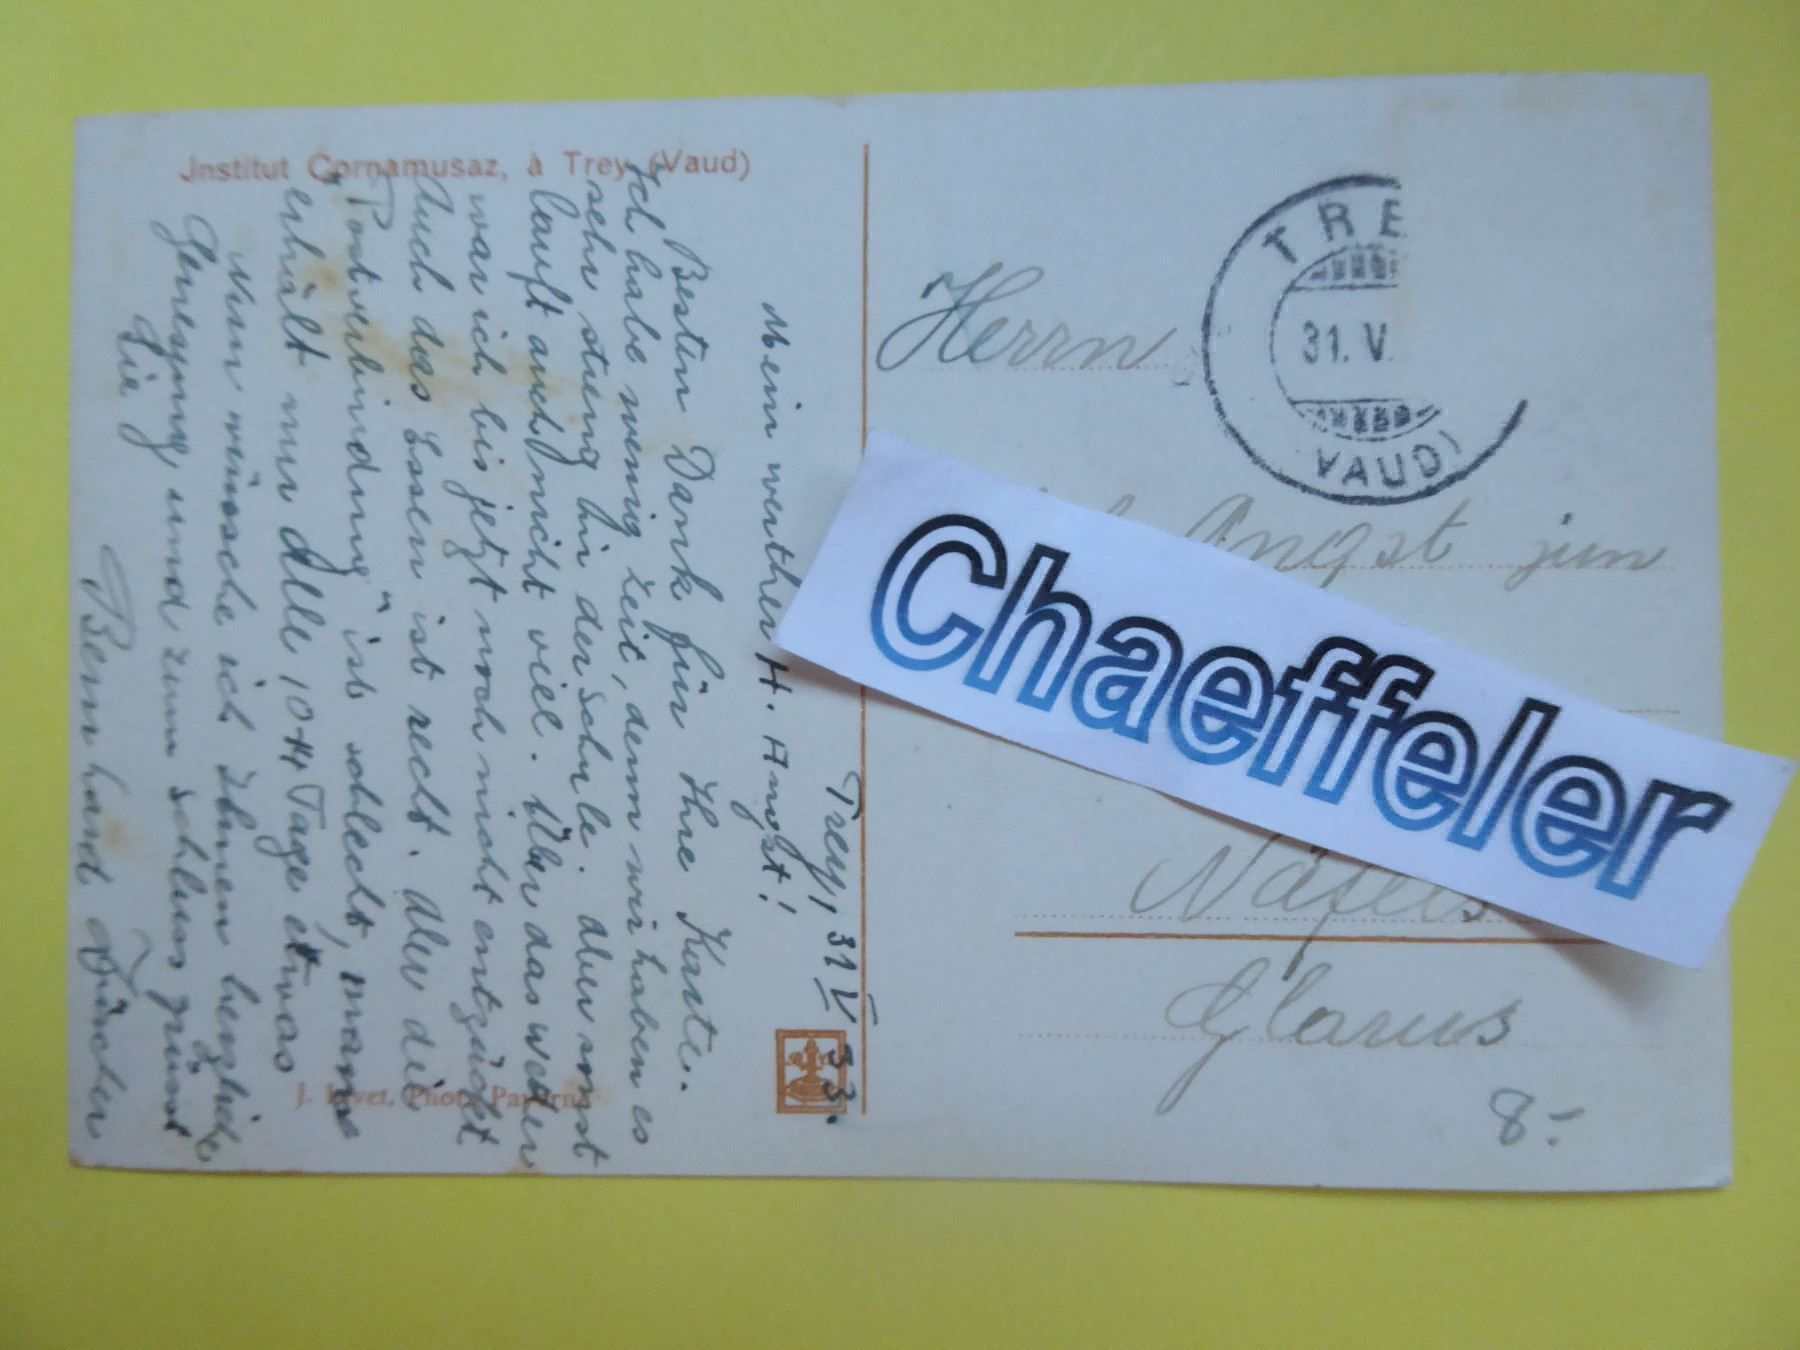 Jnstitut Cornamusaz, à Trey (Vaud)
Trey, 31 V 33.
Mein werther H. Angst!
Besten Dank für Ihre Karte.
Ich habe wenig Zeit, denn wir haben es
sehr streng hir der Schule. Aber sonst
lauft auch nicht viel. Über das Wetter
war ich bis jetzt noch nicht entzückt
Auch das Essen ist recht. Aber die
"Postverbindung" ist schlecht, mann
erhält nur Alle 10-14 Tage etwas
Nun wünsche ich Ihnen herzliche
Genesung und zum schluss grüsst
Sie
Bernhard
J. Payerne
TRE
31. V.
VAUD)
Herrn
Angst jun
Näfels
Glarus
8.-
Chaeffeler